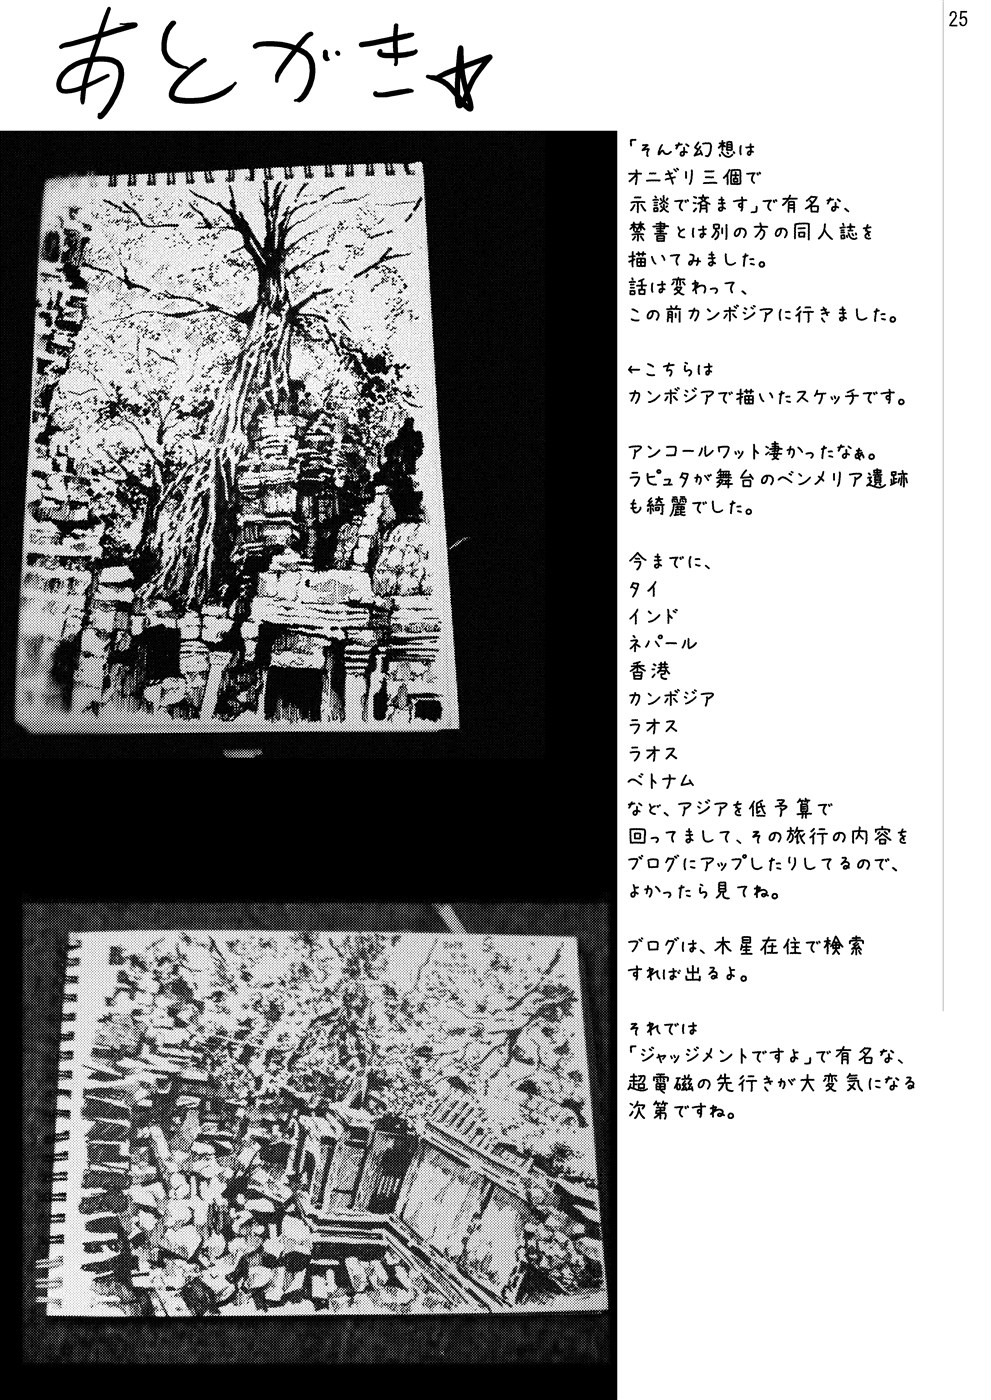 25
あとがき☆
「そんな幻想は
オニギリ三個で
示談で済ます」で有名な、
禁書とは別の方の同人誌を
描いてみました。
話は変わって、
この前カンボジアに行きました。
←こちらは
カンボジアで描いたスケッチです。
アンコールワット凄かったなぁ。
ラピュタが舞台のベンメリア遺跡
も綺麗でした。
今までに、
タイ
インド
ネパール
香港
カンボジア
ラオス
ラオス
ベトナム
など、アジアを低予算で
回ってまして、その旅行の内容を
ブログにアップしたりしてるので、
よかったら見てね。
ブログは、木星在住で検索
すれば出るよ。
それでは
「ジャッジメントですよ」で有名な、
超電磁の先行きが大変気になる
次第ですね。